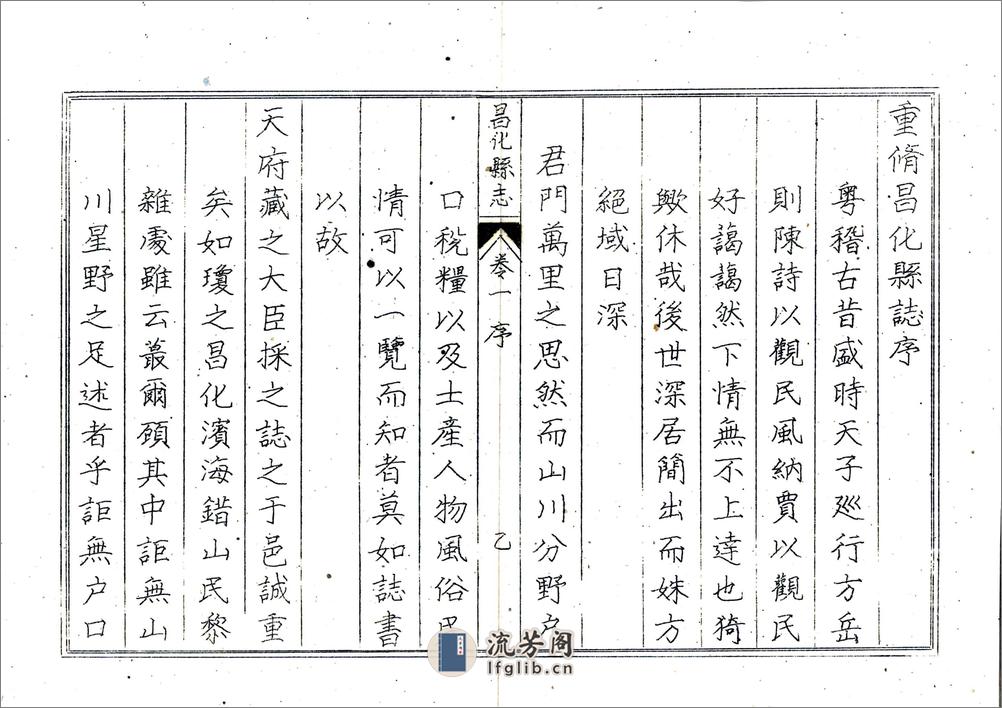 重脩昌化縣誌序
粤稽古昔盛時天子廵行方岳
則陳詩以觀民風納賈以觀民
好藹藹然下情無不上達也猗
歟休哉後世深居簡出而姝方
絕域日深
君門萬里之思然而山川分野户
昌化縣志 卷一 序 乙
口稅糧以及土產人物風俗
情可以一覽而知者莫如誌書
以故
天府藏之大臣採之誌之于邑誠重
矣如瓊之昌化濱海錯山民黎
雜處雖云蕞爾頋其中詎無山
川星野之足述者乎詎無户口
流芳阁
lfglib.cn